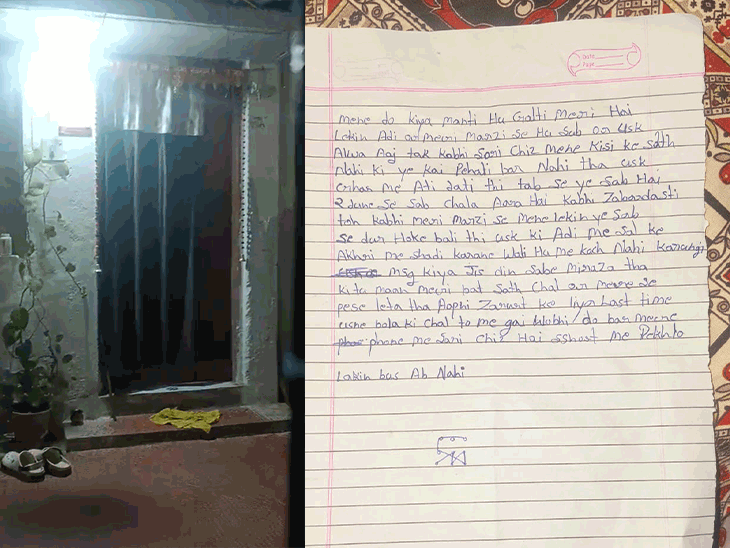 Date
Page
mene Jo kiya manti Hu Galti meri Hai
Lekin Adi or meri marzi se Hu sab or usk
Alwa Aaj tak kabhi sari chiz mene kisi ke sath
Nahi ki ye koi Pehali bar Nahi tha usk
me Ati Jati thi tab se ye sab Hai
2 June se sab chala Aara Hai kabhi Zabardasti
toh kabhi meri marzi se mene lekin ye sab
se dur Hoke bali thi usk ki Adi me sal ke
Akhri me shadi karane wali Hu me kuch Nahi karungi
msg kiya Jis din sabe miraza tha
kitu maan meri bat sath chal or mere se
pese leta tha Aaphi Zarurt ke liya Last time
usne bola ki chal to me gai wobhi do bar meene
phone me sari chiz Hai sshost me Pekhlo
Lakin bas Ab Nahi